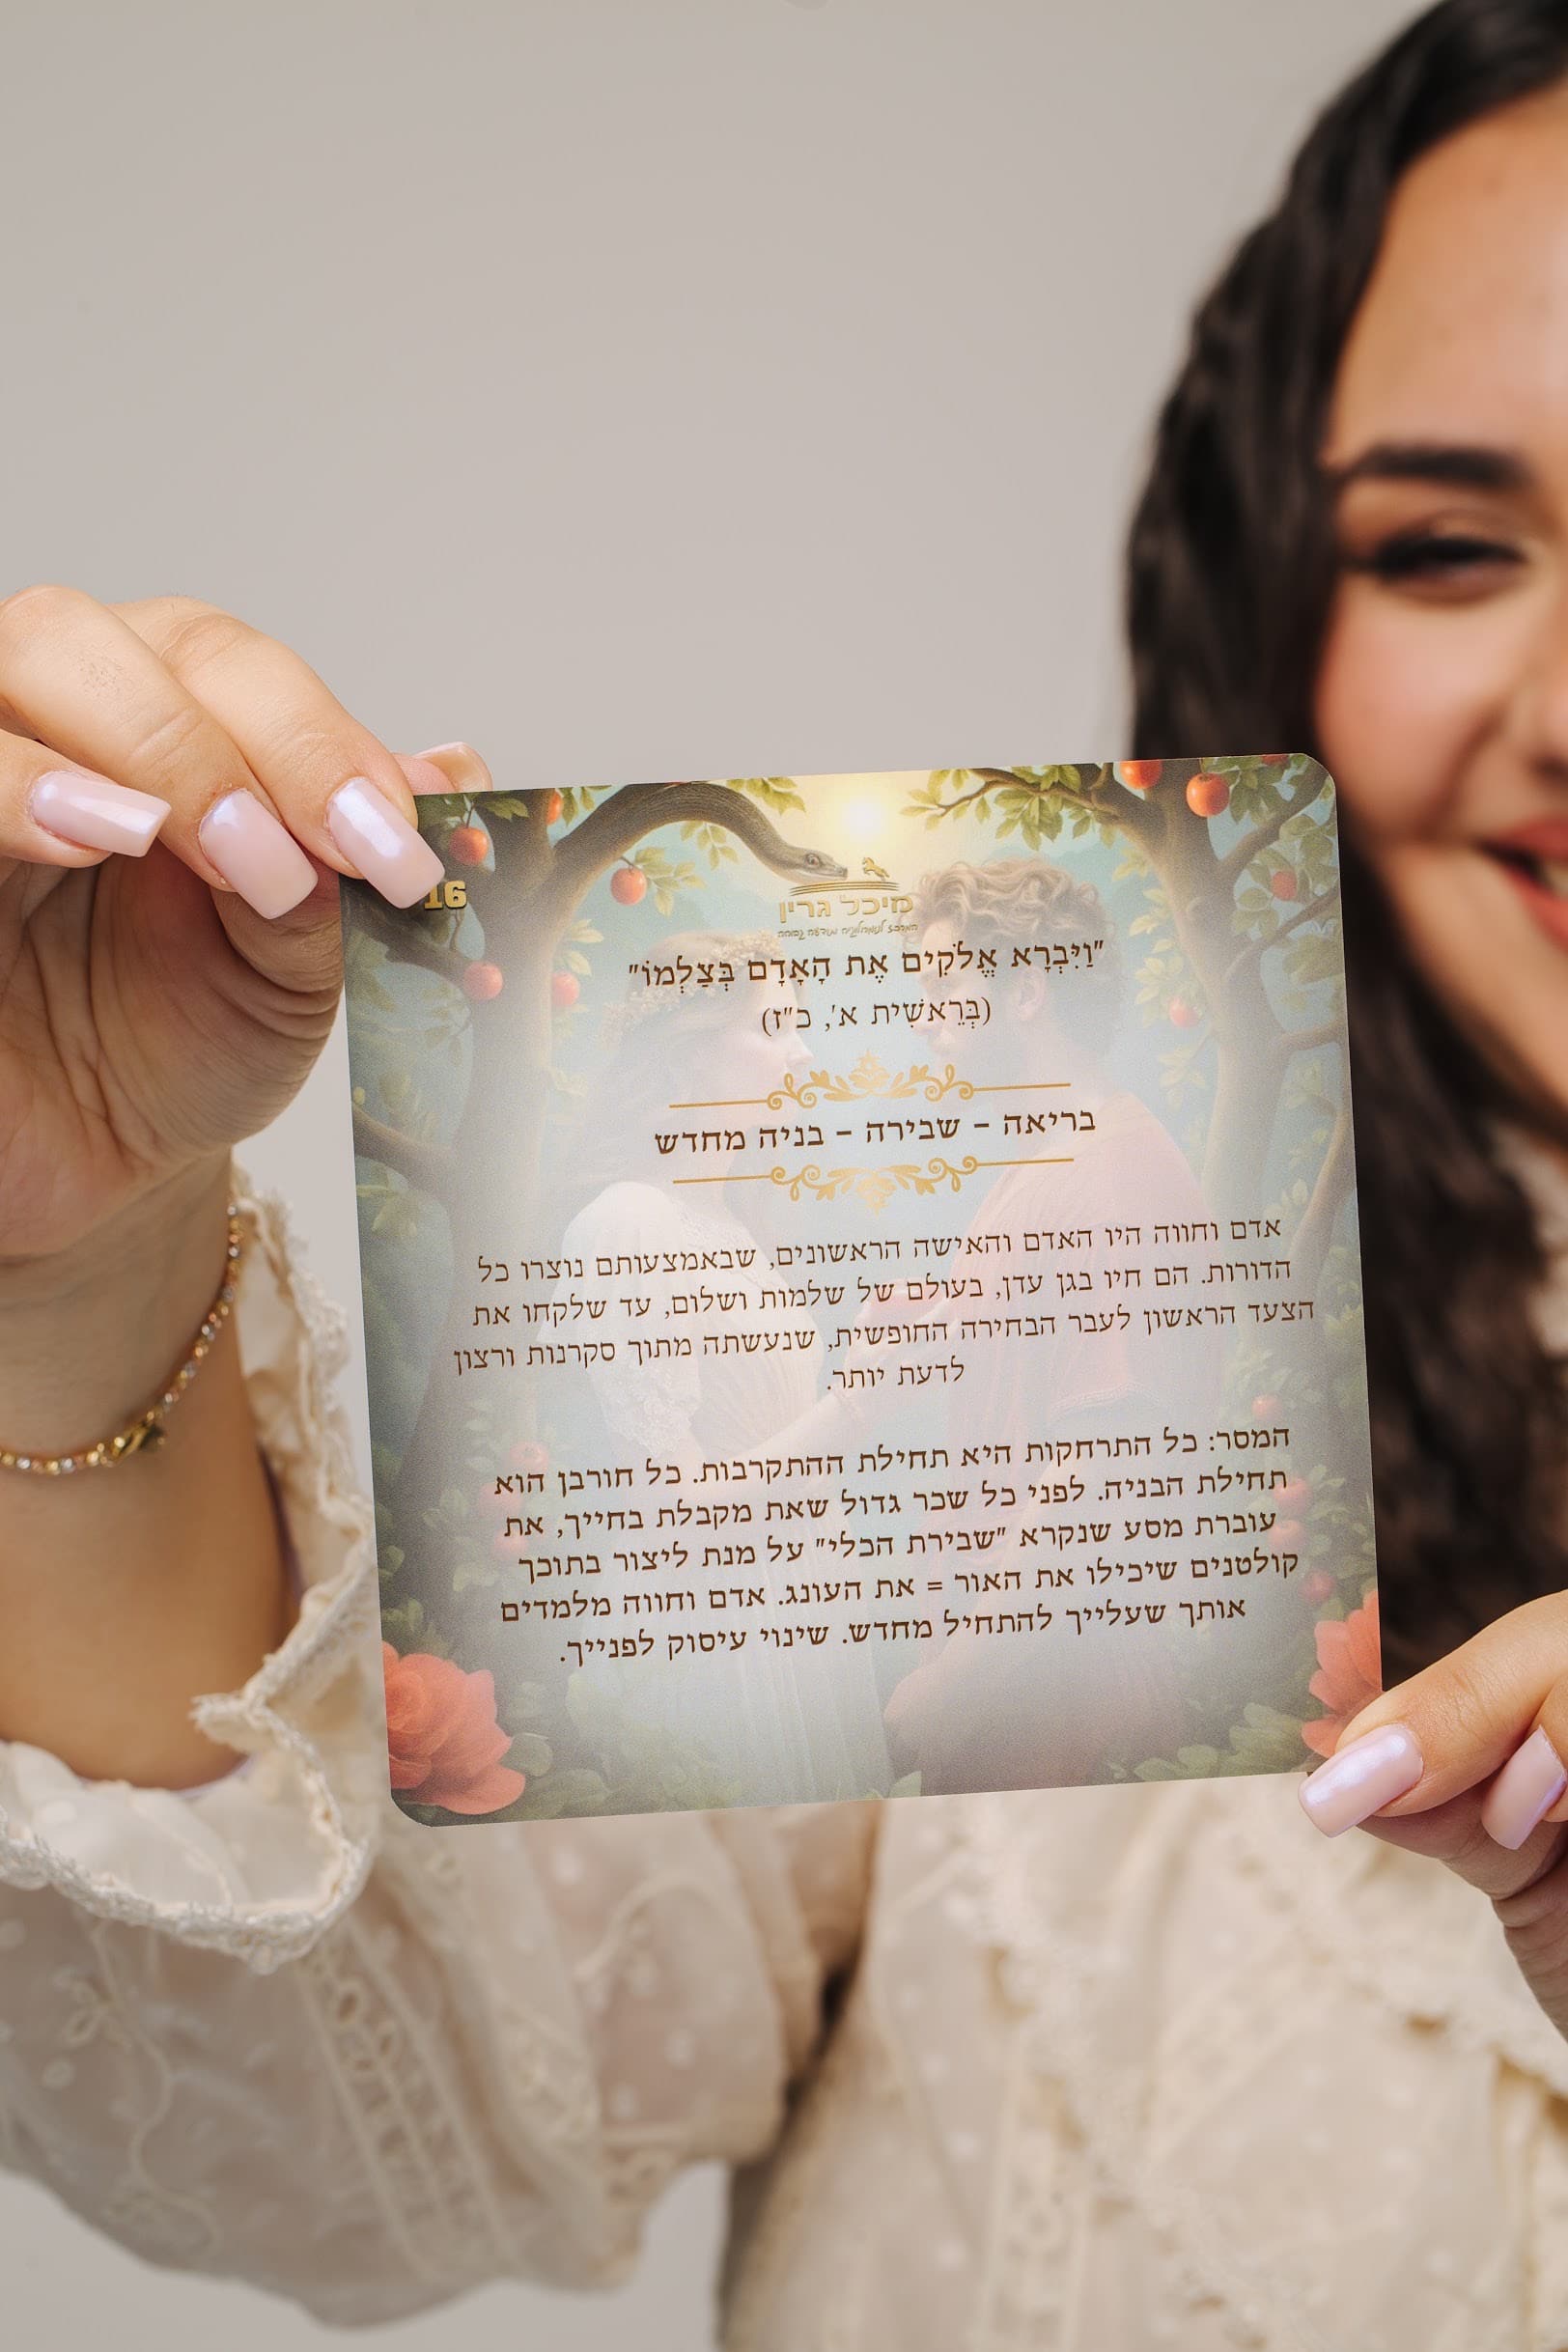 16
מיכל גרין
המרכז לנומרולוגיה ומודעות גבוהה
"וַיִּבְרָא אֱלֹקִים אֶת הָאָדָם בְּצַלְמוֹ"
(בְּרֵאשִׁית א', כ"ז)
בריאה – שבירה – בניה מחדש
אדם וחווה היו האדם והאישה הראשונים, שבאמצעותם נוצרו כל
הדורות. הם חיו בגן עדן, בעולם של שלמות ושלום, עד שלקחו את
הצעד הראשון לעבר הבחירה החופשית, שנעשתה מתוך סקרנות ורצון
לדעת יותר.
המסר: כל התרחקות היא תחילת ההתקרבות. כל חורבן הוא
תחילת הבניה. לפני כל שכר גדול שאת מקבלת בחייך, את
עוברת מסע שנקרא "שבירת הכלי" על מנת ליצור בתוכך
קולטנים שיכילו את האור = את העונג. אדם וחווה מלמדים
אותך שעלייך להתחיל מחדש. שינוי עיסוק לפנייך.